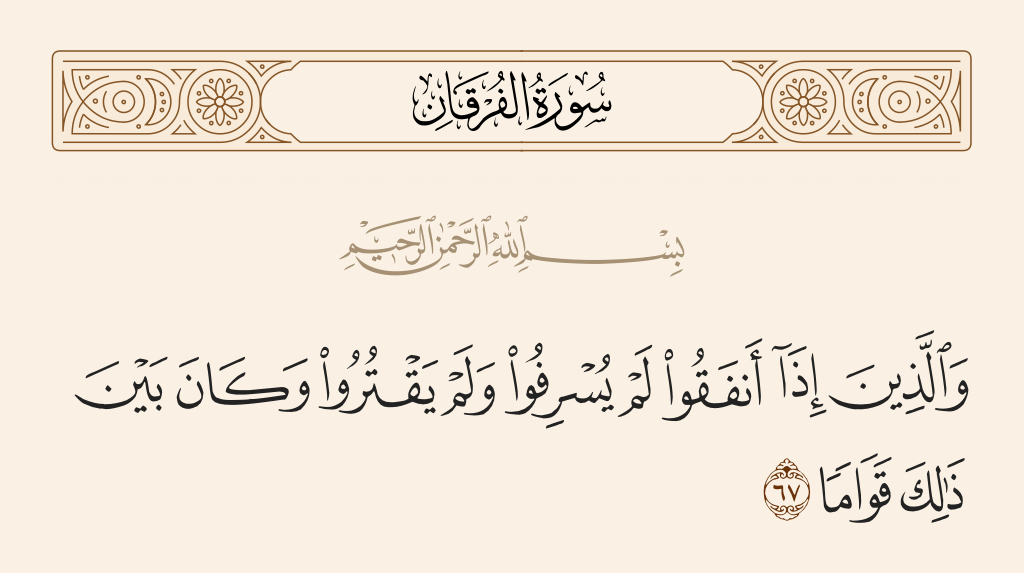 سُورَةُ الفُرْقَانِ
بِسْمِ ٱللَّهِ ٱلرَّحْمَٰنِ ٱلرَّحِيمِ
وَٱلَّذِينَ إِذَآ أَنفَقُوا۟ لَمْ يُسْرِفُوا۟ وَلَمْ يَقْتُرُوا۟ وَكَانَ بَيْنَ
ذَٰلِكَ قَوَامًا ٦٧